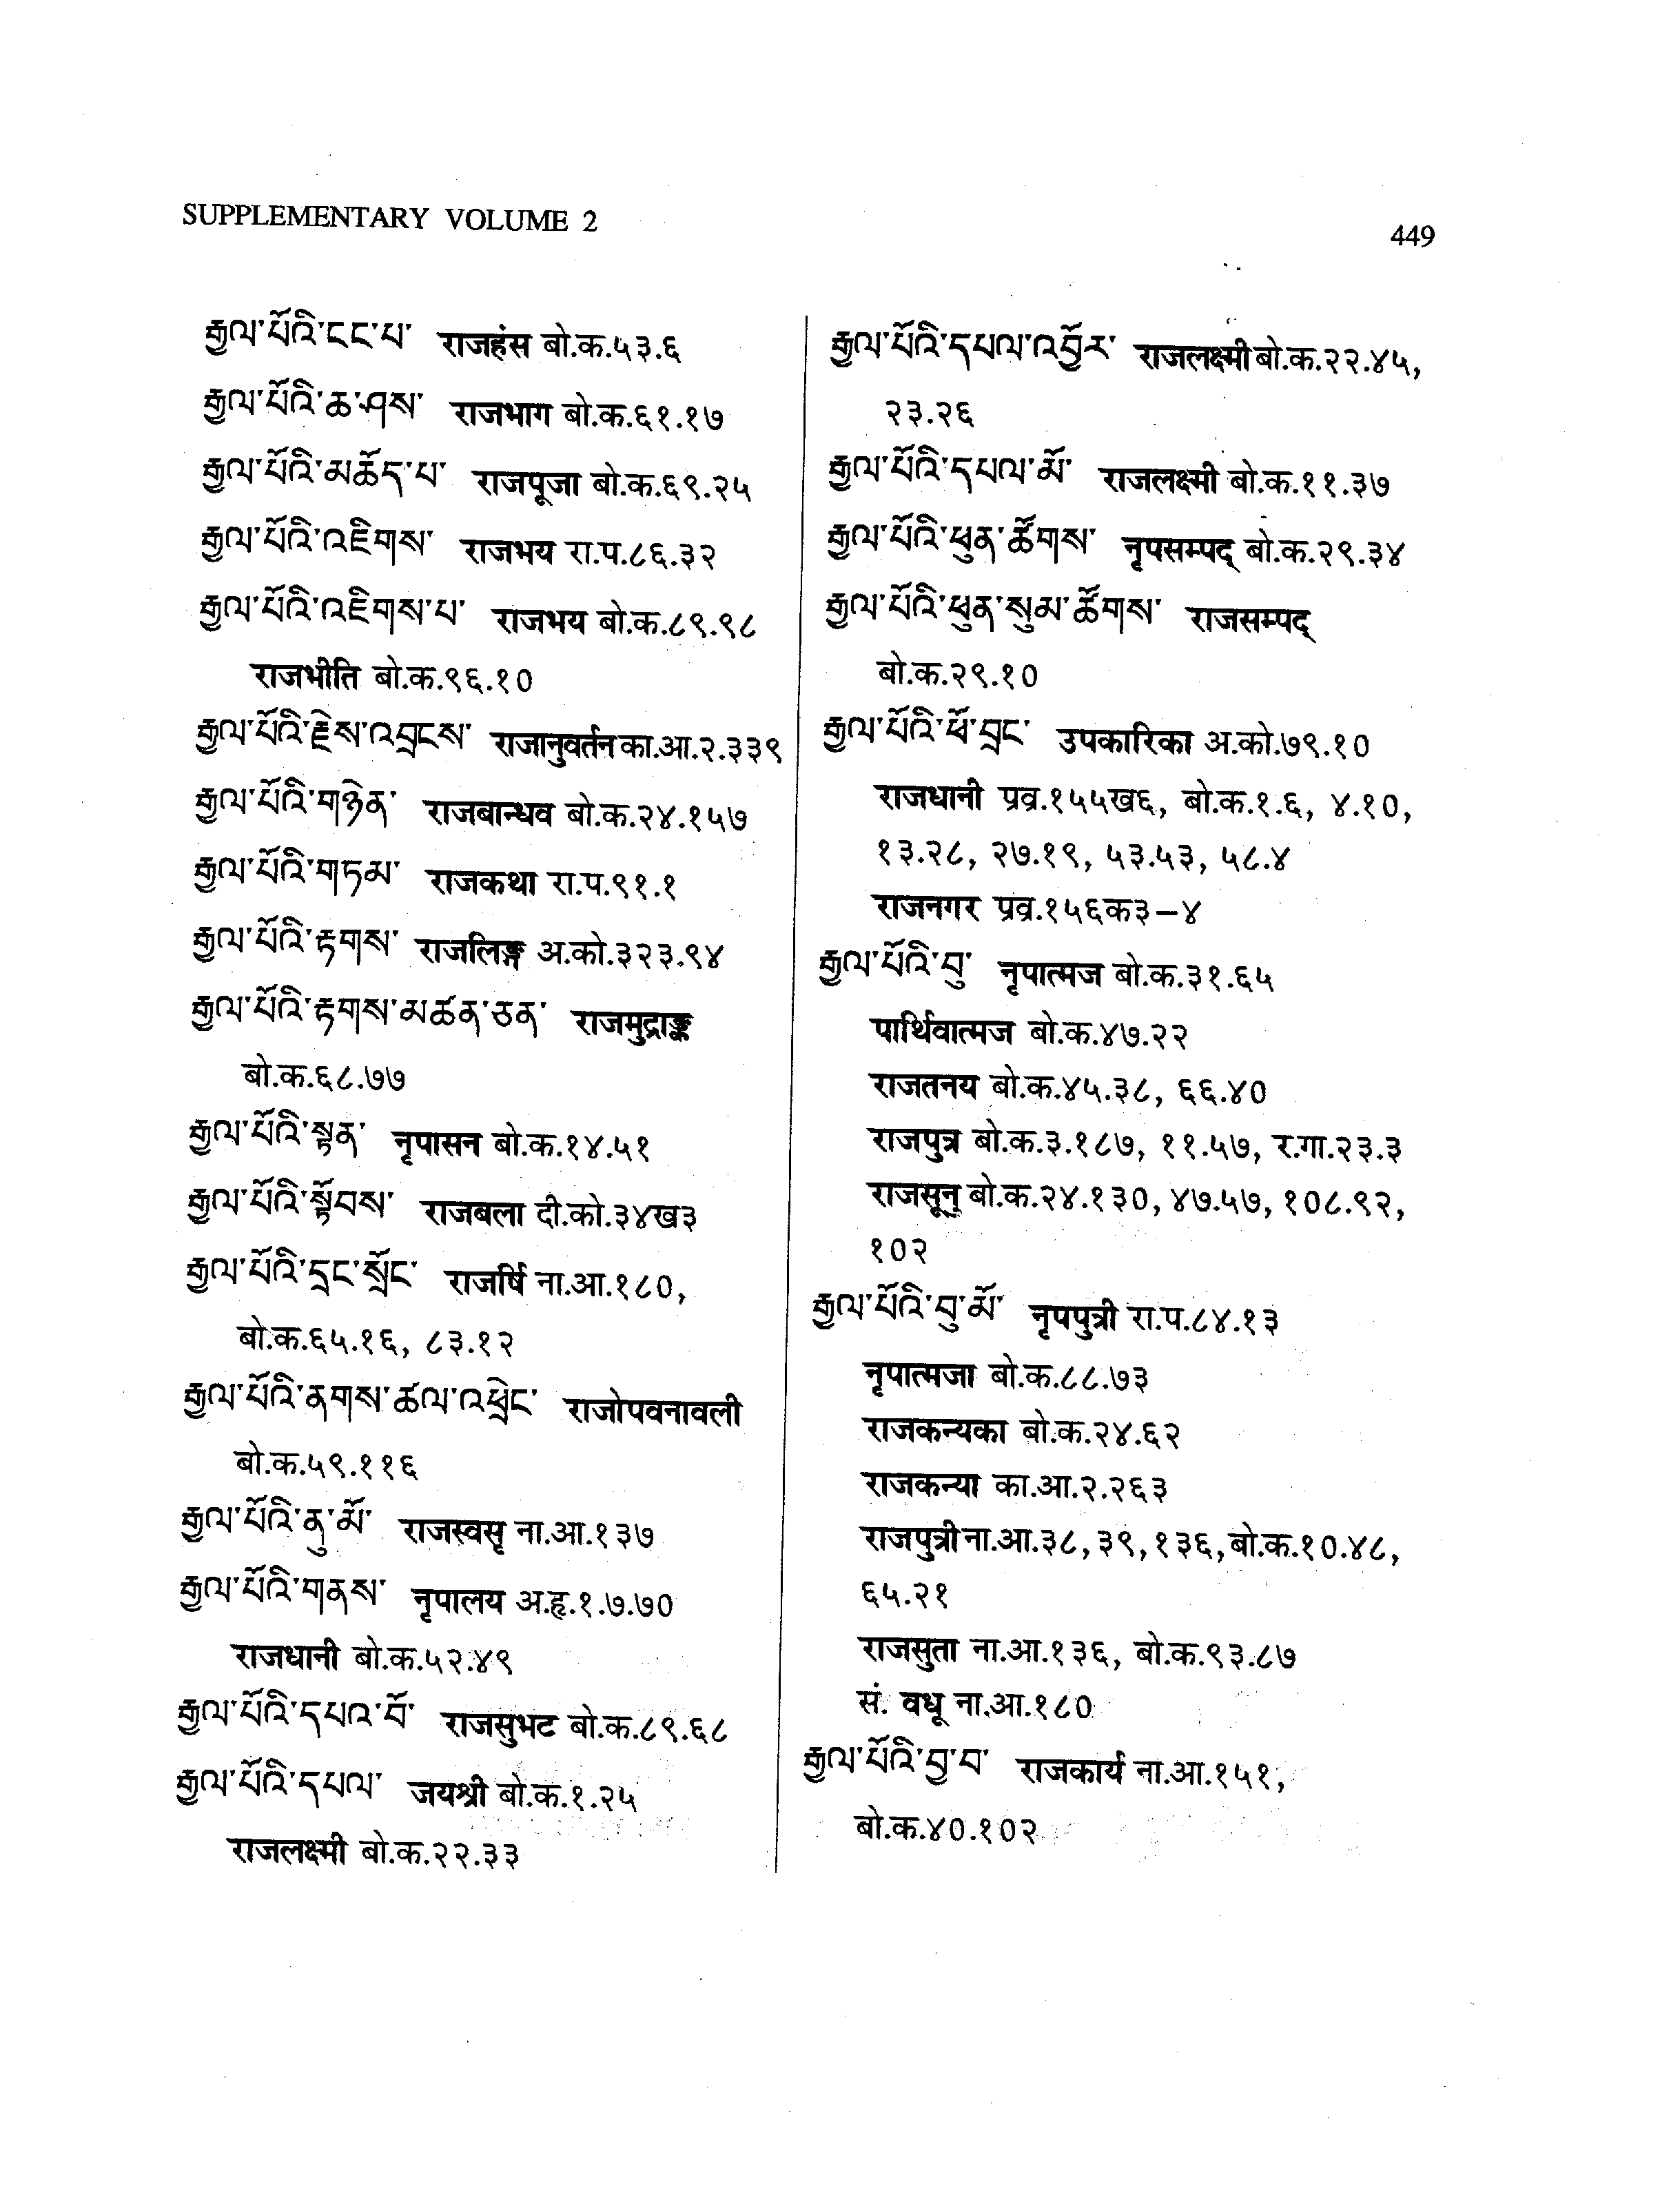 SUPPLEMENTARY VOLUME 2
449
རྒྱལ་པོའི་ངང་པ་ राजहंस बो.क.५३.६
རྒྱལ་པོའི་ཆ་ཤས་ राजभाग बो.क.६१.१७
རྒྱལ་པོའི་མཆོད་པ་ राजपूजा बो.क.६९.२५
རྒྱལ་པོའི་འཇིགས་ राजभय रा.प.८६.३२
རྒྱལ་པོའི་འཇིགས་པ་ राजभय बो.क.८९.९८
राजभीति बो.क.९६.१०
རྒྱལ་པོའི་རྗེས་འབྲངས་ राजानुवर्तन का.आ.२.३३९
རྒྱལ་པོའི་གཉེན་ राजबान्धव बो.क.२४.१५७
རྒྱལ་པོའི་གཏམ་ राजकथा रा.प.९१.१
རྒྱལ་པོའི་རྟགས་ राजलिङ्ग अ.को.३२३.९४
རྒྱལ་པོའི་རྟགས་མཚན་ཅན་ राजमुद्राङ्क
बो.क.६८.७७
རྒྱལ་པོའི་སྟན་ नृपासन बो.क.१४.५१
རྒྱལ་པོའི་སྟོབས་ राजबला दी.को.३४ख३
རྒྱལ་པོའི་དྲང་སྲོང་ राजर्षि ना.आ.१८०,
बो.क.६५.१६, ८३.१२
རྒྱལ་པོའི་ནགས་ཚལ་འཕྲེང་ राजोपवनावली
बो.क.५९.११६
རྒྱལ་པོའི་ནུ་མོ་ राजस्वसृ ना.आ.१३७
རྒྱལ་པོའི་གནས་ नृपालय अ.हृ.१.७.७०
राजधानी बो.क.५२.४९
རྒྱལ་པོའི་དཔའ་བོ་ राजसुभट बो.क.८९.६८
རྒྱལ་པོའི་དཔལ་ जयश्री बो.क.१.२५
राजलक्ष्मी बो.क.२२.३३
རྒྱལ་པོའི་དཔལ་འབྱོར་ राजलक्ष्मी बो.क.२२.४५,
२३.२६
རྒྱལ་པོའི་དཔལ་མོ་ राजलक्ष्मी बो.क.११.३७
རྒྱལ་པོའི་ཕུན་ཚོགས་ नृपसम्पद् बो.क.२९.३४
རྒྱལ་པོའི་ཕུན་སུམ་ཚོགས་ राजसम्पद्
बो.क.२९.१०
རྒྱལ་པོའི་ཕོ་བྲང་ उपकारिका अ.को.७९.१०
राजधानी प्रव्र.१५५ख६, बो.क.१.६, ४.१०,
१३.२८, २७.१९, ५३.५३, ५८.४
राजनगर प्रव्र.१५६क३–४
རྒྱལ་པོའི་བུ་ नृपात्मज बो.क.३१.६५
पार्थिवात्मज बो.क.४७.२२
राजतनय बो.क.४५.३८, ६६.४०
राजपुत्र बो.क.३.१८७, ११.५७, र.गा.२३.३
राजसूनु बो.क.२४.१३०, ४७.५७, १०८.९२,
१०२
རྒྱལ་པོའི་བུ་མོ་ नृपपुत्री रा.प.८४.१३
नृपात्मजा बो.क.८८.७३
राजकन्यका बो.क.२४.६२
राजकन्या का.आ.२.२६३
राजपुत्री ना.आ.३८, ३९, १३६, बो.क.१०.४८,
६५.२१
राजसुता ना.आ.१३६, बो.क.९३.८७
सं. वधू ना.आ.१८०
རྒྱལ་པོའི་བྱ་བ་ राजकार्य ना.आ.१५१,
बो.क.४०.१०२